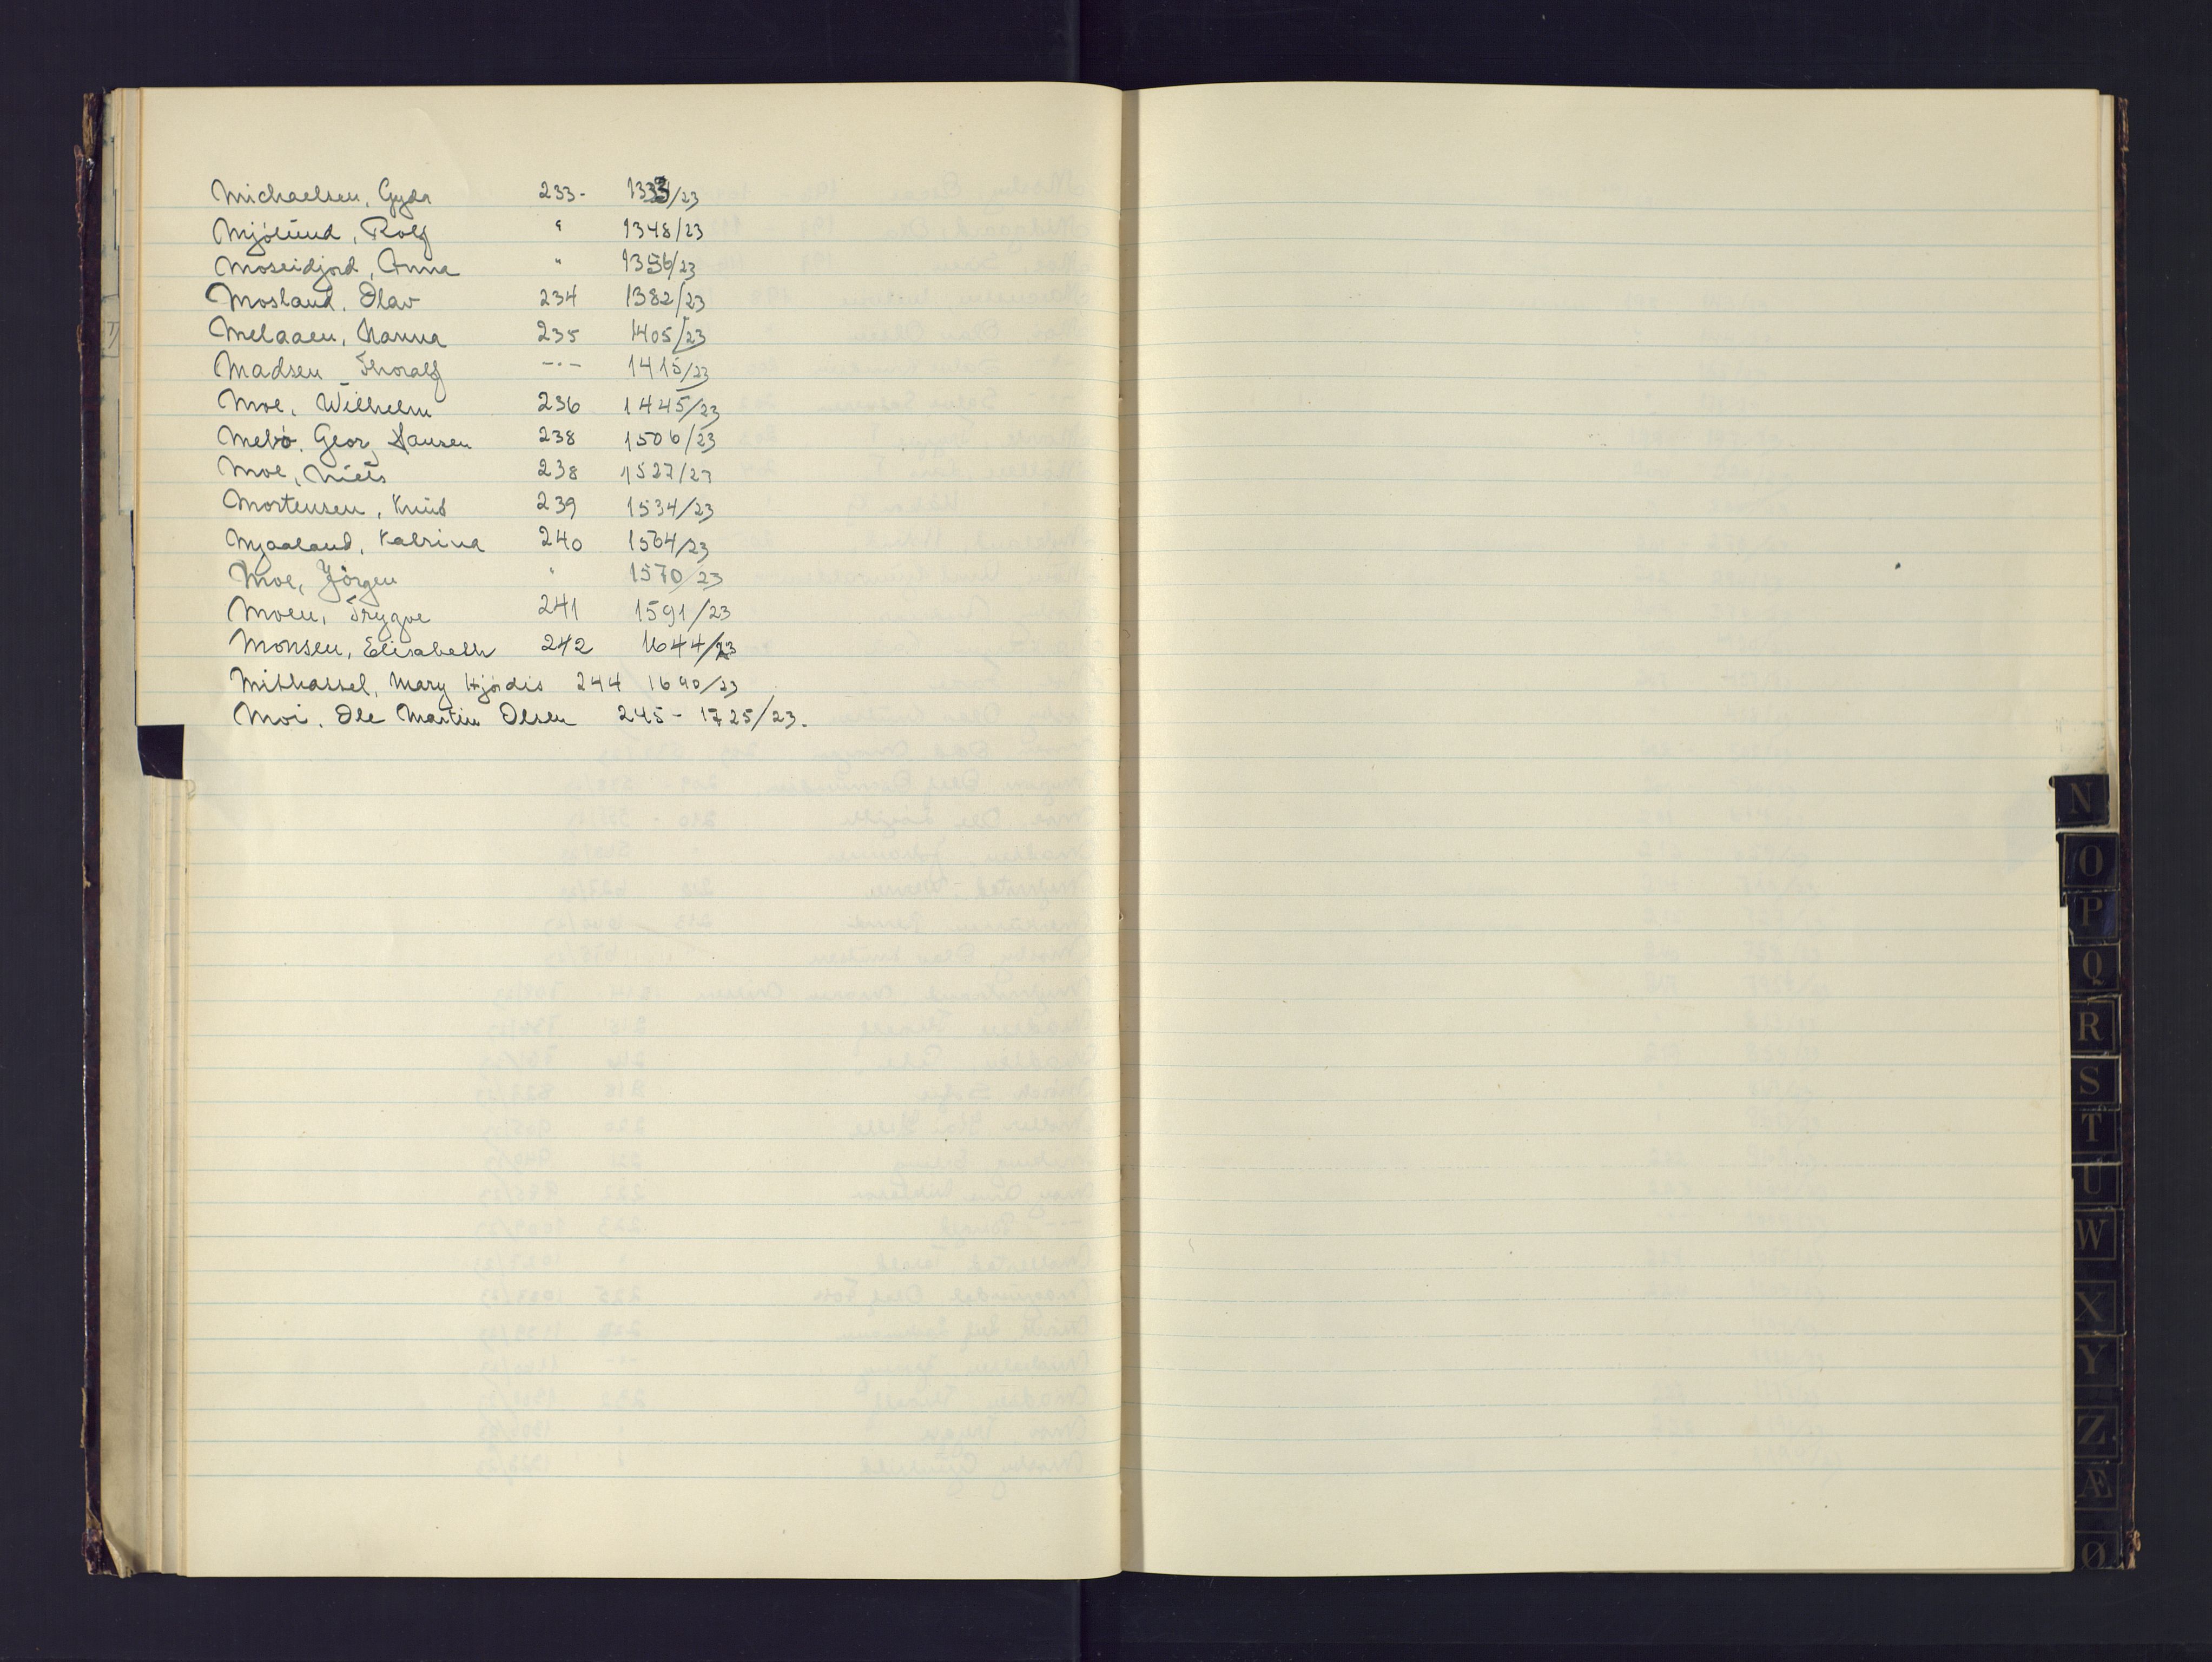 Michaelsen, Gyda 233 - 1333/23
Mjölund, Rolf " 1348/23
Moseidjord, Anna " 1356/23
Mosland, Olav 234 1382/23
Melaaen, Nanna 235 1405/23
Madsen Thoralf -"- 1415/23
Moe, Wilhelm 236 1445/23
Mebö, Georg Hansen 238 1506/23
Moe, Niels 238 1527/23
Mortensen, Knud 239 1534/23
Mjaaland, Katrina 240 1564/23
Moe, Jörgen " 1570/23
Moen, Trygve 241 1591/23
Monsen, Elisabeth 242 1644/23
Mithassel, Mary Hjördis 244 1690/23
Moi, Ole Martin Olsen 245 - 1725/23.
N
O
P
Q
R
S
T
U
W
X
Y
Z
Æ
Ø